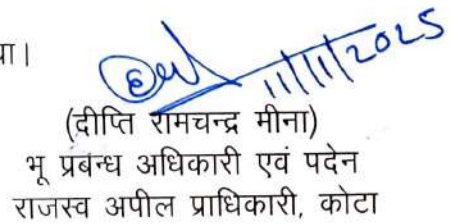 या।
11/11/2025
(दीप्ति रामचन्द्र मीना)
भू प्रबन्ध अधिकारी एवं पदेन
राजस्व अपील प्राधिकारी, कोटा